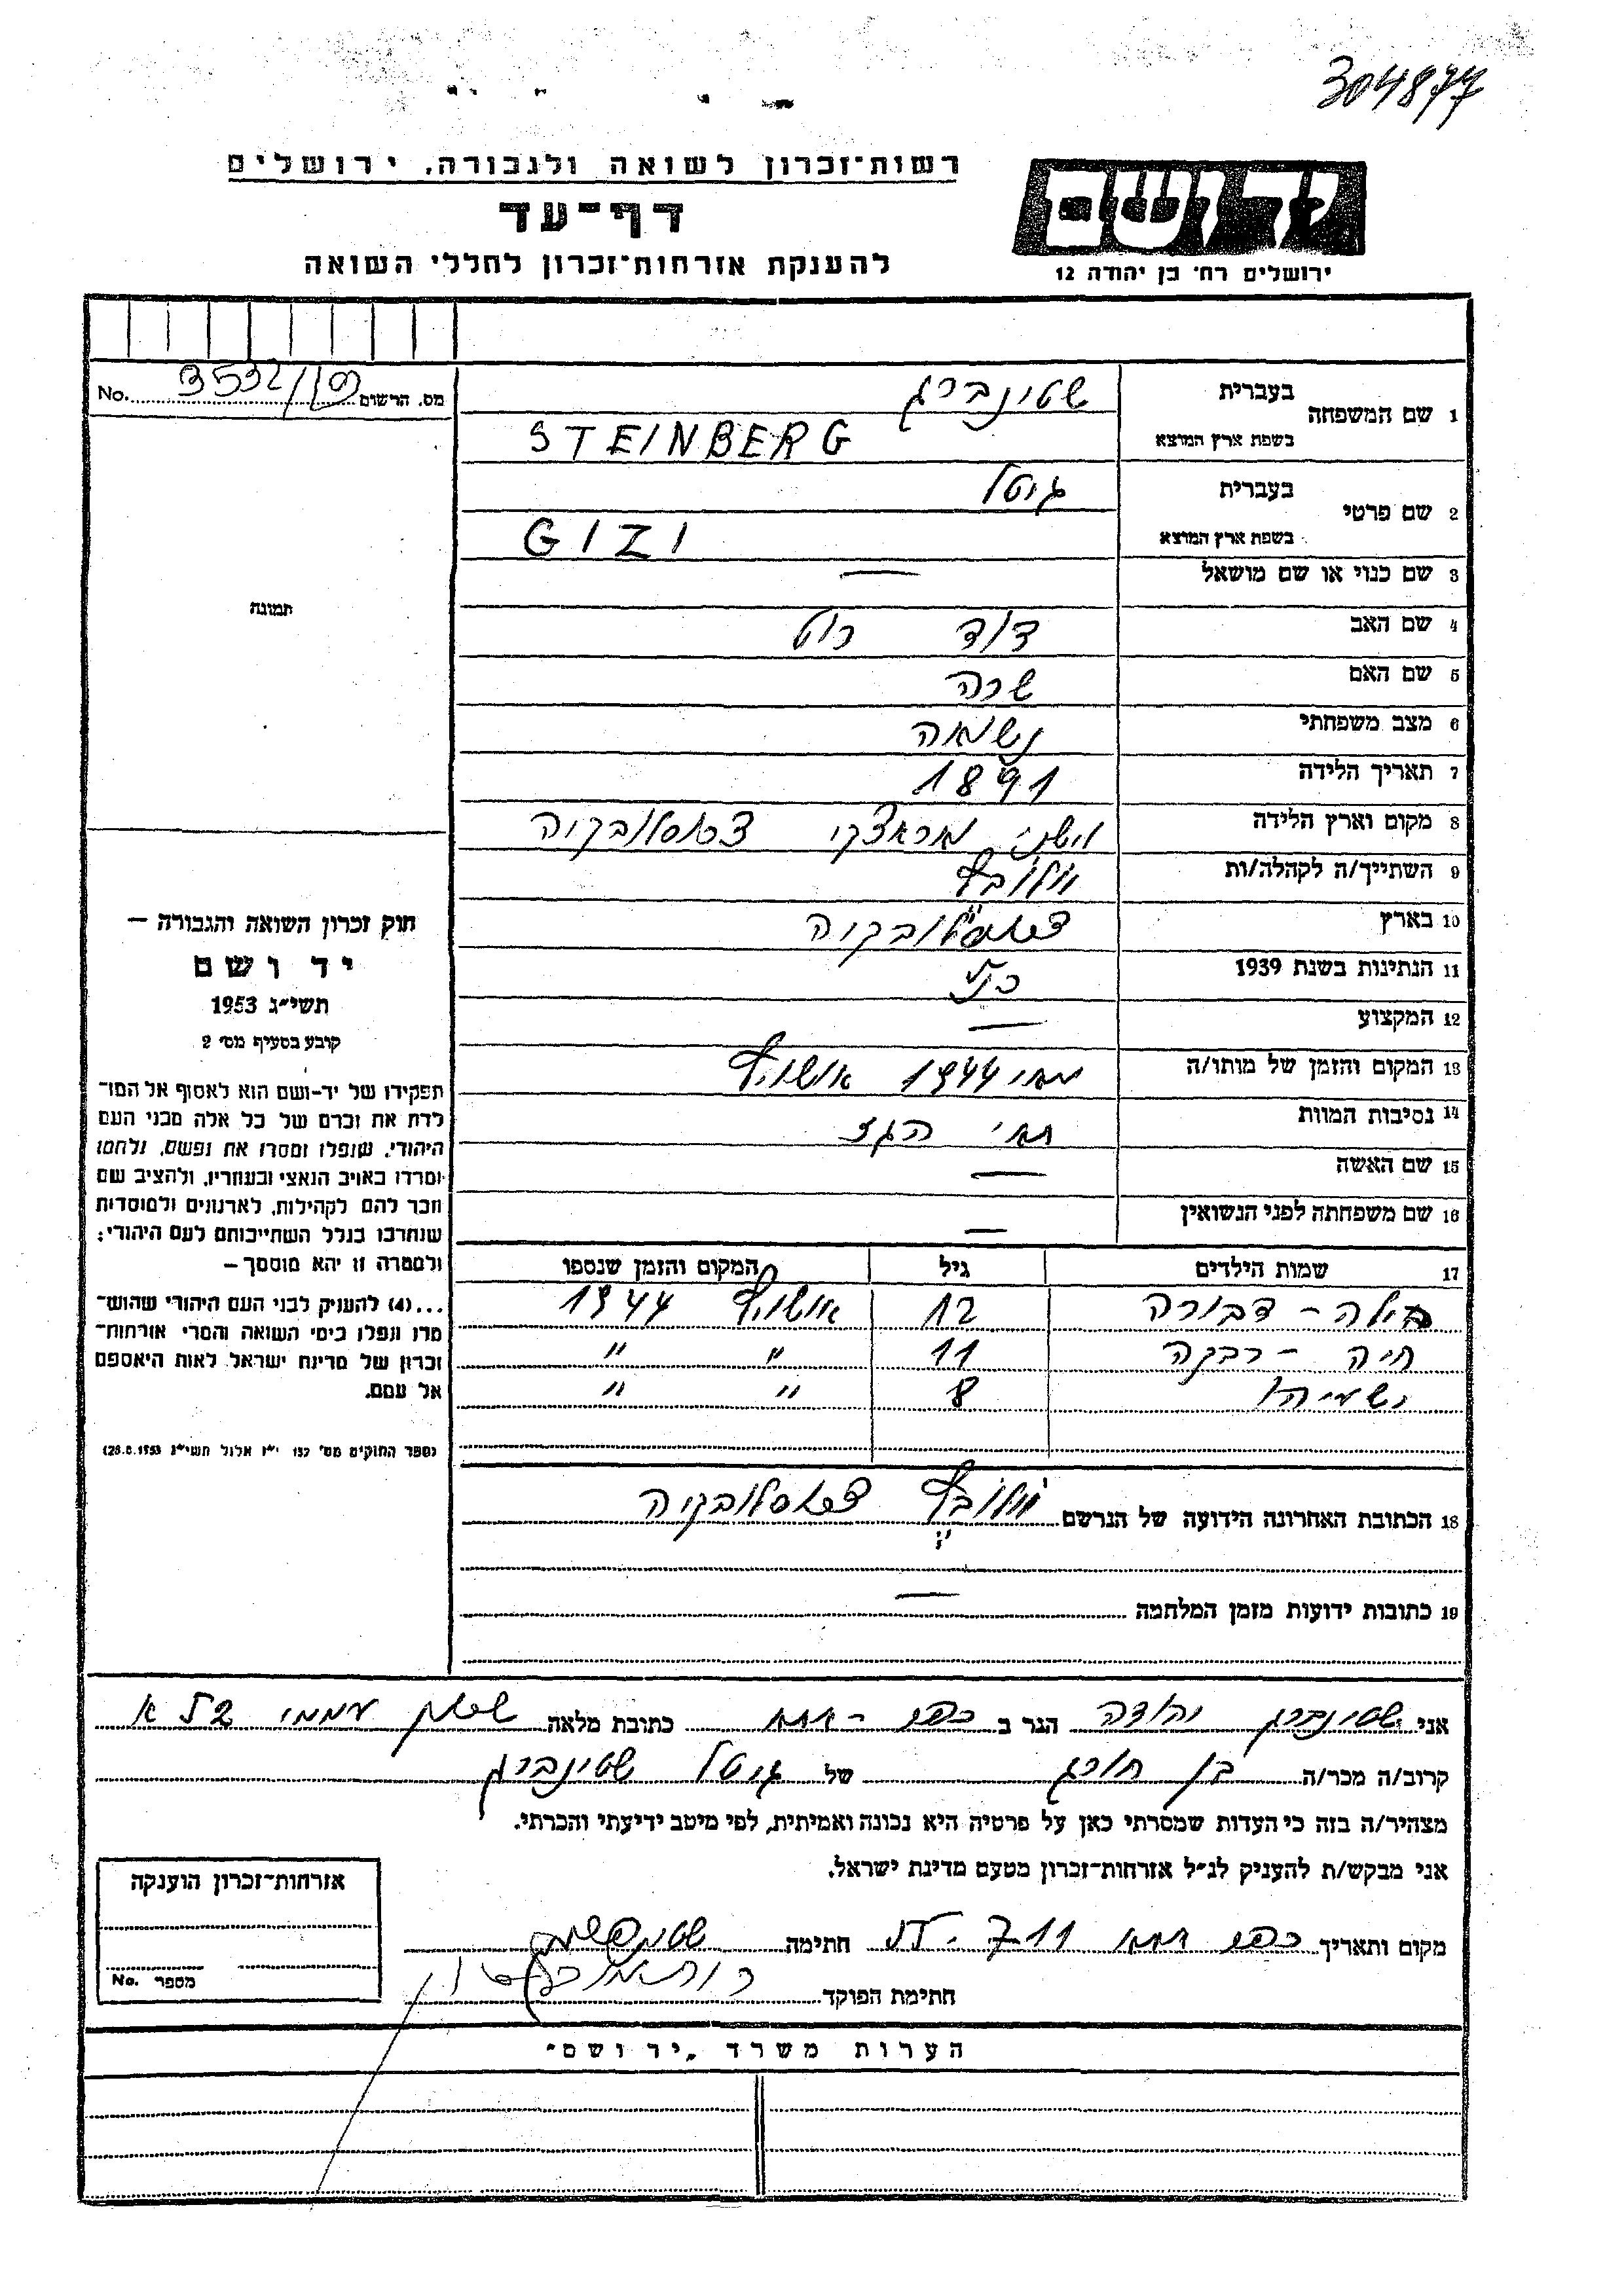 304877
רשות־זכרון לשואה ולגבורה, ירושלים
יד ושם
דף־עד
להענקת אזרחות־זכרון לחללי השואה
ירושלים רח׳ בן יהודה 12
מס. הרשום 3532/ No.
1 שם המשפחה בעברית שטינברג
בשפת ארץ המוצא STEINBERG
2 שם פרטי בעברית גיטל
בשפת ארץ המוצא GIZI
3 שם כנוי או שם מושאל —
4 שם האב דוד רוט
5 שם האם שרה
6 מצב משפחתי נשואה
7 תאריך הלידה 1891
8 מקום וארץ הלידה צכוסלובקיה
9 השתייך/ה לקהלה/ות
10 בארץ צכוסלובקיה
11 הנתינות בשנת 1939 כנ״ל
12 המקצוע —
13 המקום והזמן של מותו/ה מאי 1944 אושויץ
14 נסיבות המוות תאי הגז
15 שם האשה —
16 שם משפחתה לפני הנשואין —
17 שמות הילדים גיל המקום והזמן שנספו
בילה - דבורה 12 אושויץ 1944
חיה - רבקה 11 " "
ישעיהו 8 " "
18 הכתובת האחרונה הידועה של הנרשם צכוסלובקיה
19 כתובות ידועות מזמן המלחמה —
תמונה
חוק זכרון השואה והגבורה —
יד ושם
תשי״ג 1953
קובע בסעיף מס׳ 2
תפקידו של יד־ושם הוא לאסוף אל המו־
לדת את זכרם של כל אלה מבני העם
היהודי, שנפלו ומסרו את נפשם, נלחמו
ומרדו באויב הנאצי ובעוזריו, ולהציב שם
וזכר להם לקהילות, לארגונים ולמוסדות
שנחרבו בגלל השתייכותם לעם היהודי;
ולמטרה זו יהא מוסמך —
...(4) להעניק לבני העם היהודי שהוש־
מדו ונפלו בימי השואה והמרי אזרחות־
זכרון של מדינת ישראל לאות היאספם
אל עמם.
(ספר החוקים מס׳ 132 י״ז אלול תשי״ג 28.8.1953)
אני שטינברג יהודה הגר ב כפר - אתא כתובת מלאה שכון עממי 52 א
קרוב/ה מכר/ה בן חורג של גיטל שטינברג
מצהיר/ה בזה כי העדות שמסרתי כאן על פרטיה היא נכונה ואמיתית, לפי מיטב ידיעתי והכרתי.
אני מבקש/ת להעניק לנ״ל אזרחות־זכרון מטעם מדינת ישראל.
מקום ותאריך כפר אתא חתימה
חתימת הפוקד
אזרחות־זכרון הוענקה
מספר No.
הערות משרד „יד ושם״